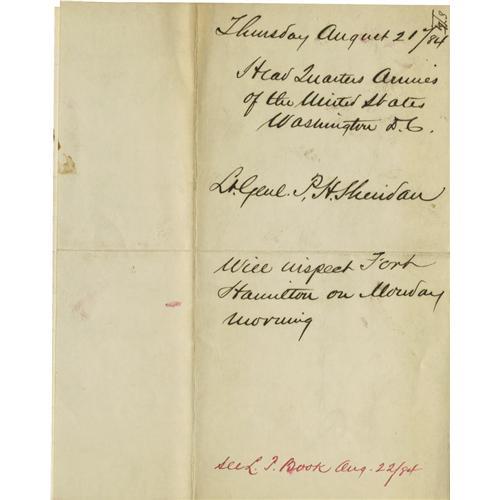 Thursday August 21st/84
Head Quarters Armies
of the United States
Washington D.C.
Lt. Genl. P. H. Sheridan
Will inspect Fort
Hamilton on Monday
morning
see L. T. Book Aug. 22/84